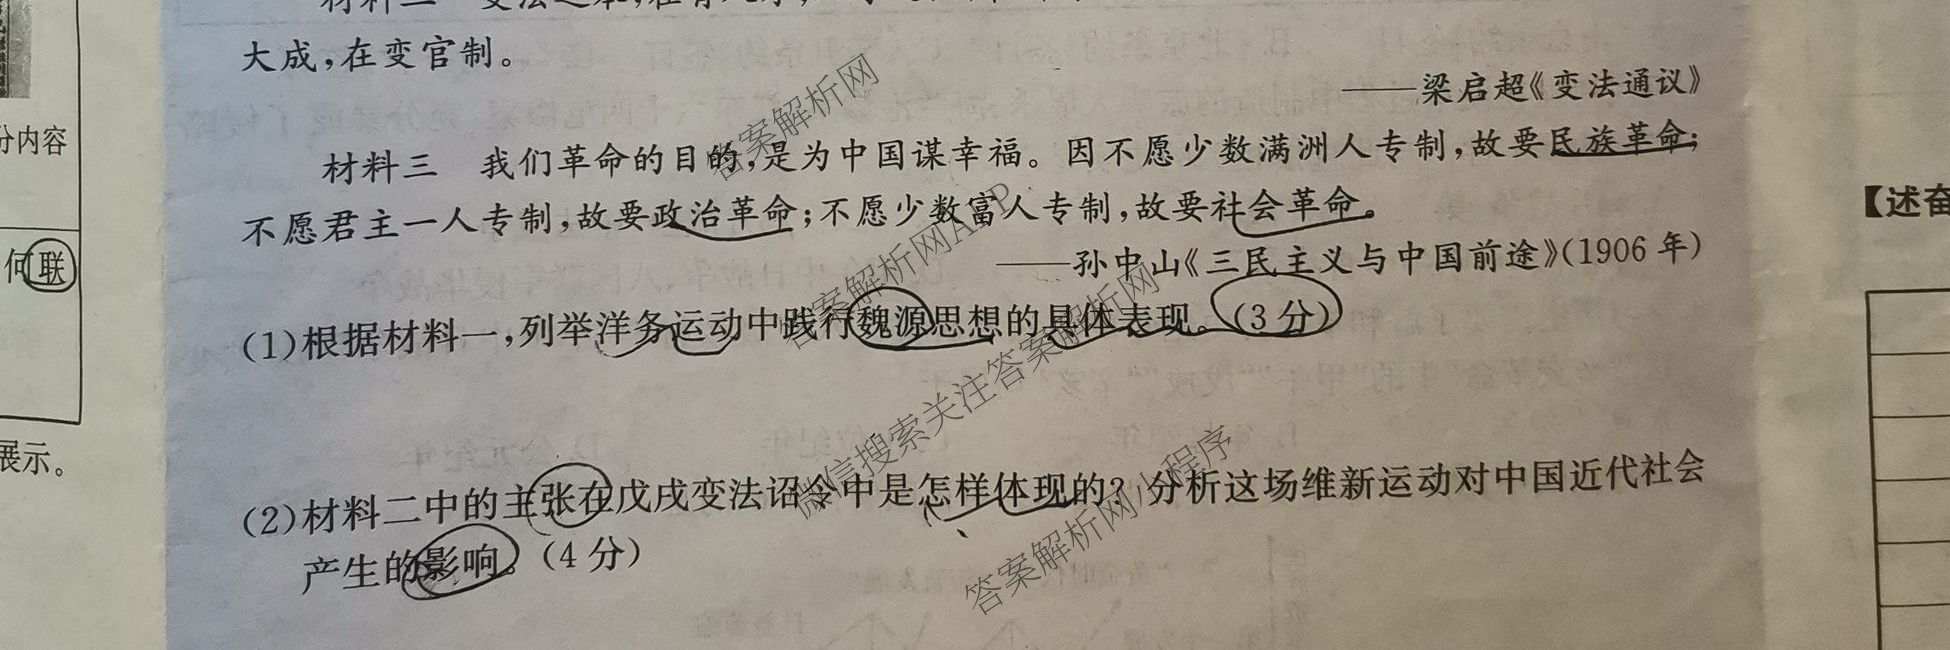 大成,在变官制。
——梁启超《变法通议》
分内容
材料三 我们革命的目的,是为中国谋幸福。因不愿少数满洲人专制,故要民族革命;
不愿君主一人专制,故要政治革命;不愿少数富人专制,故要社会革命。
【述奋
何联
——孙中山《三民主义与中国前途》(1906 年)
(1)根据材料一,列举洋务运动中践行魏源思想的具体表现。(3 分)
展示。
(2)材料二中的主张在戊戌变法诏令中是怎样体现的?分析这场维新运动对中国近代社会
产生的影响。(4 分)
答案解析网
答案解析网APP
微信搜索关注答案解析网
答案解析网小程序